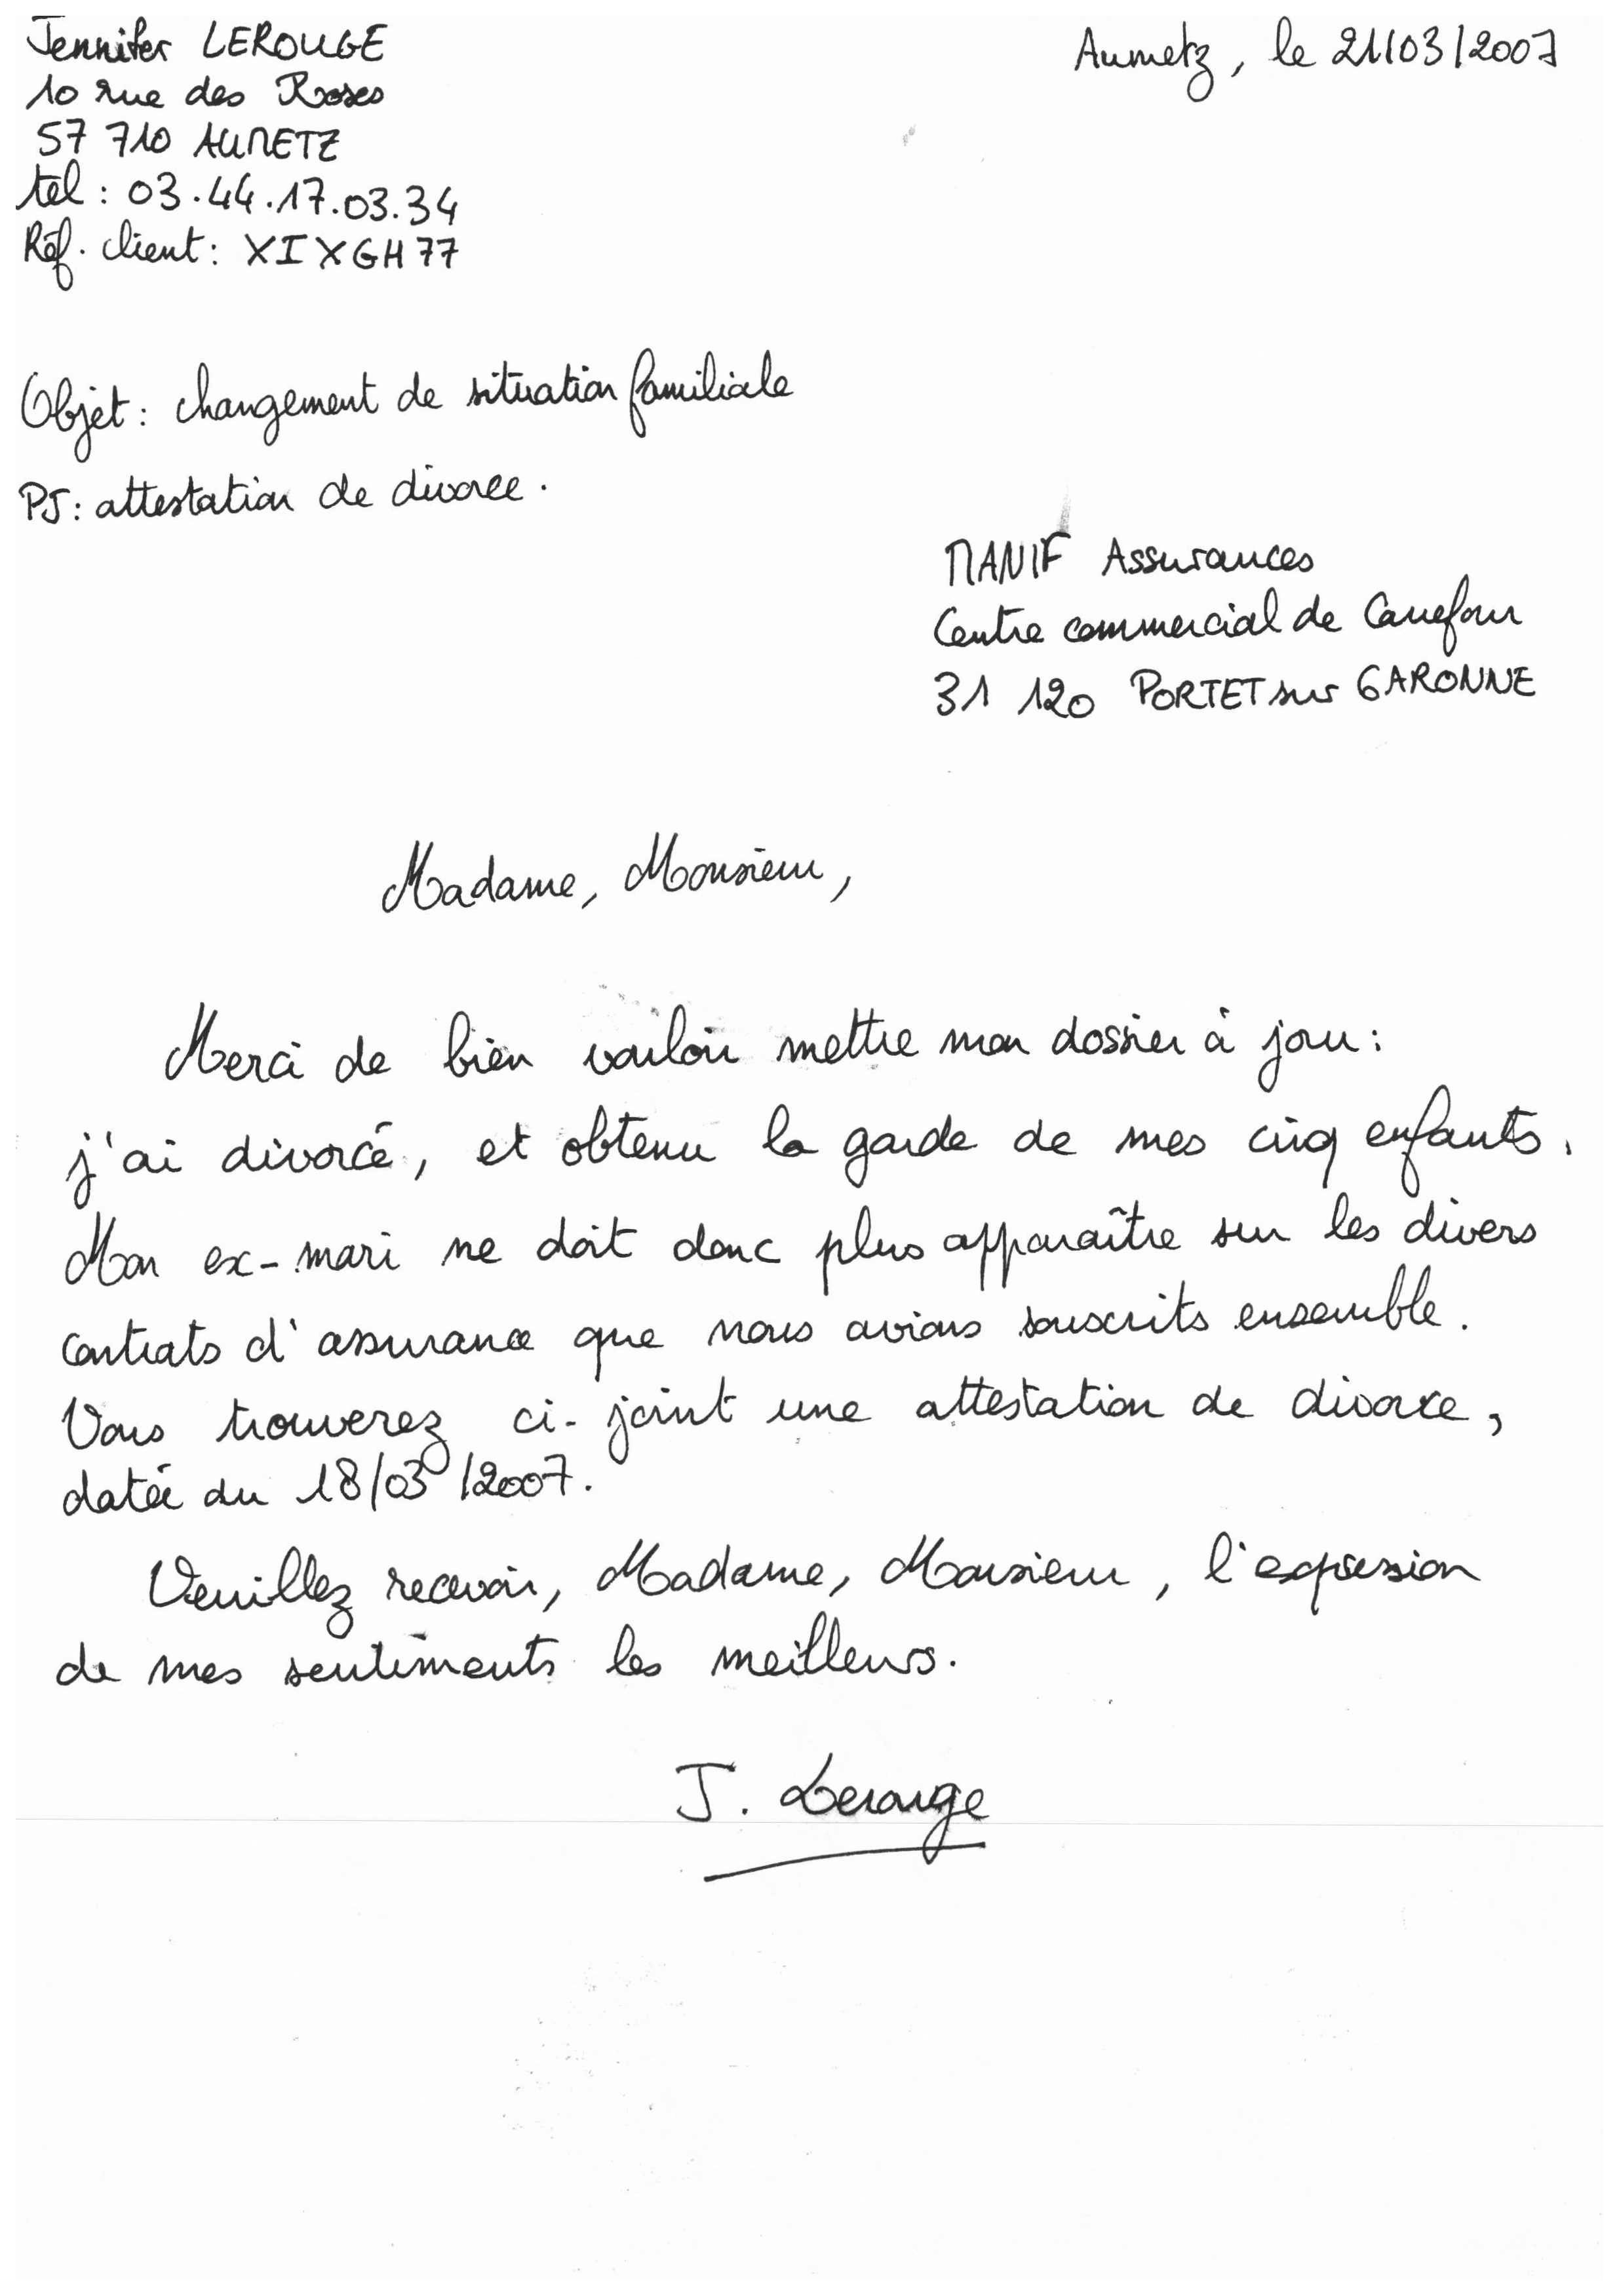 Jennifer LEROUGE
10 rue des Roses
57 710 AUMETZ
tel : 03.44.17.03.34
Réf. client : XIXGH77
Aumetz, le 21/03/2007
Objet : changement de situation familiale
PJ : attestation de divorce.
MANIF Assurances
Centre commercial de Carrefour
31 120 PORTET sur GARONNE
Madame, Monsieur,
Merci de bien vouloir mettre mon dossier à jour :
j'ai divorcé, et obtenu la garde de mes cinq enfants.
Mon ex-mari ne doit donc plus apparaître sur les divers
contrats d'assurance que nous avions souscrits ensemble.
Vous trouverez ci-joint une attestation de divorce,
datée du 18/03/2007.
Veuillez recevoir, Madame, Monsieur, l'expression
de mes sentiments les meilleurs.
J. Lerouge